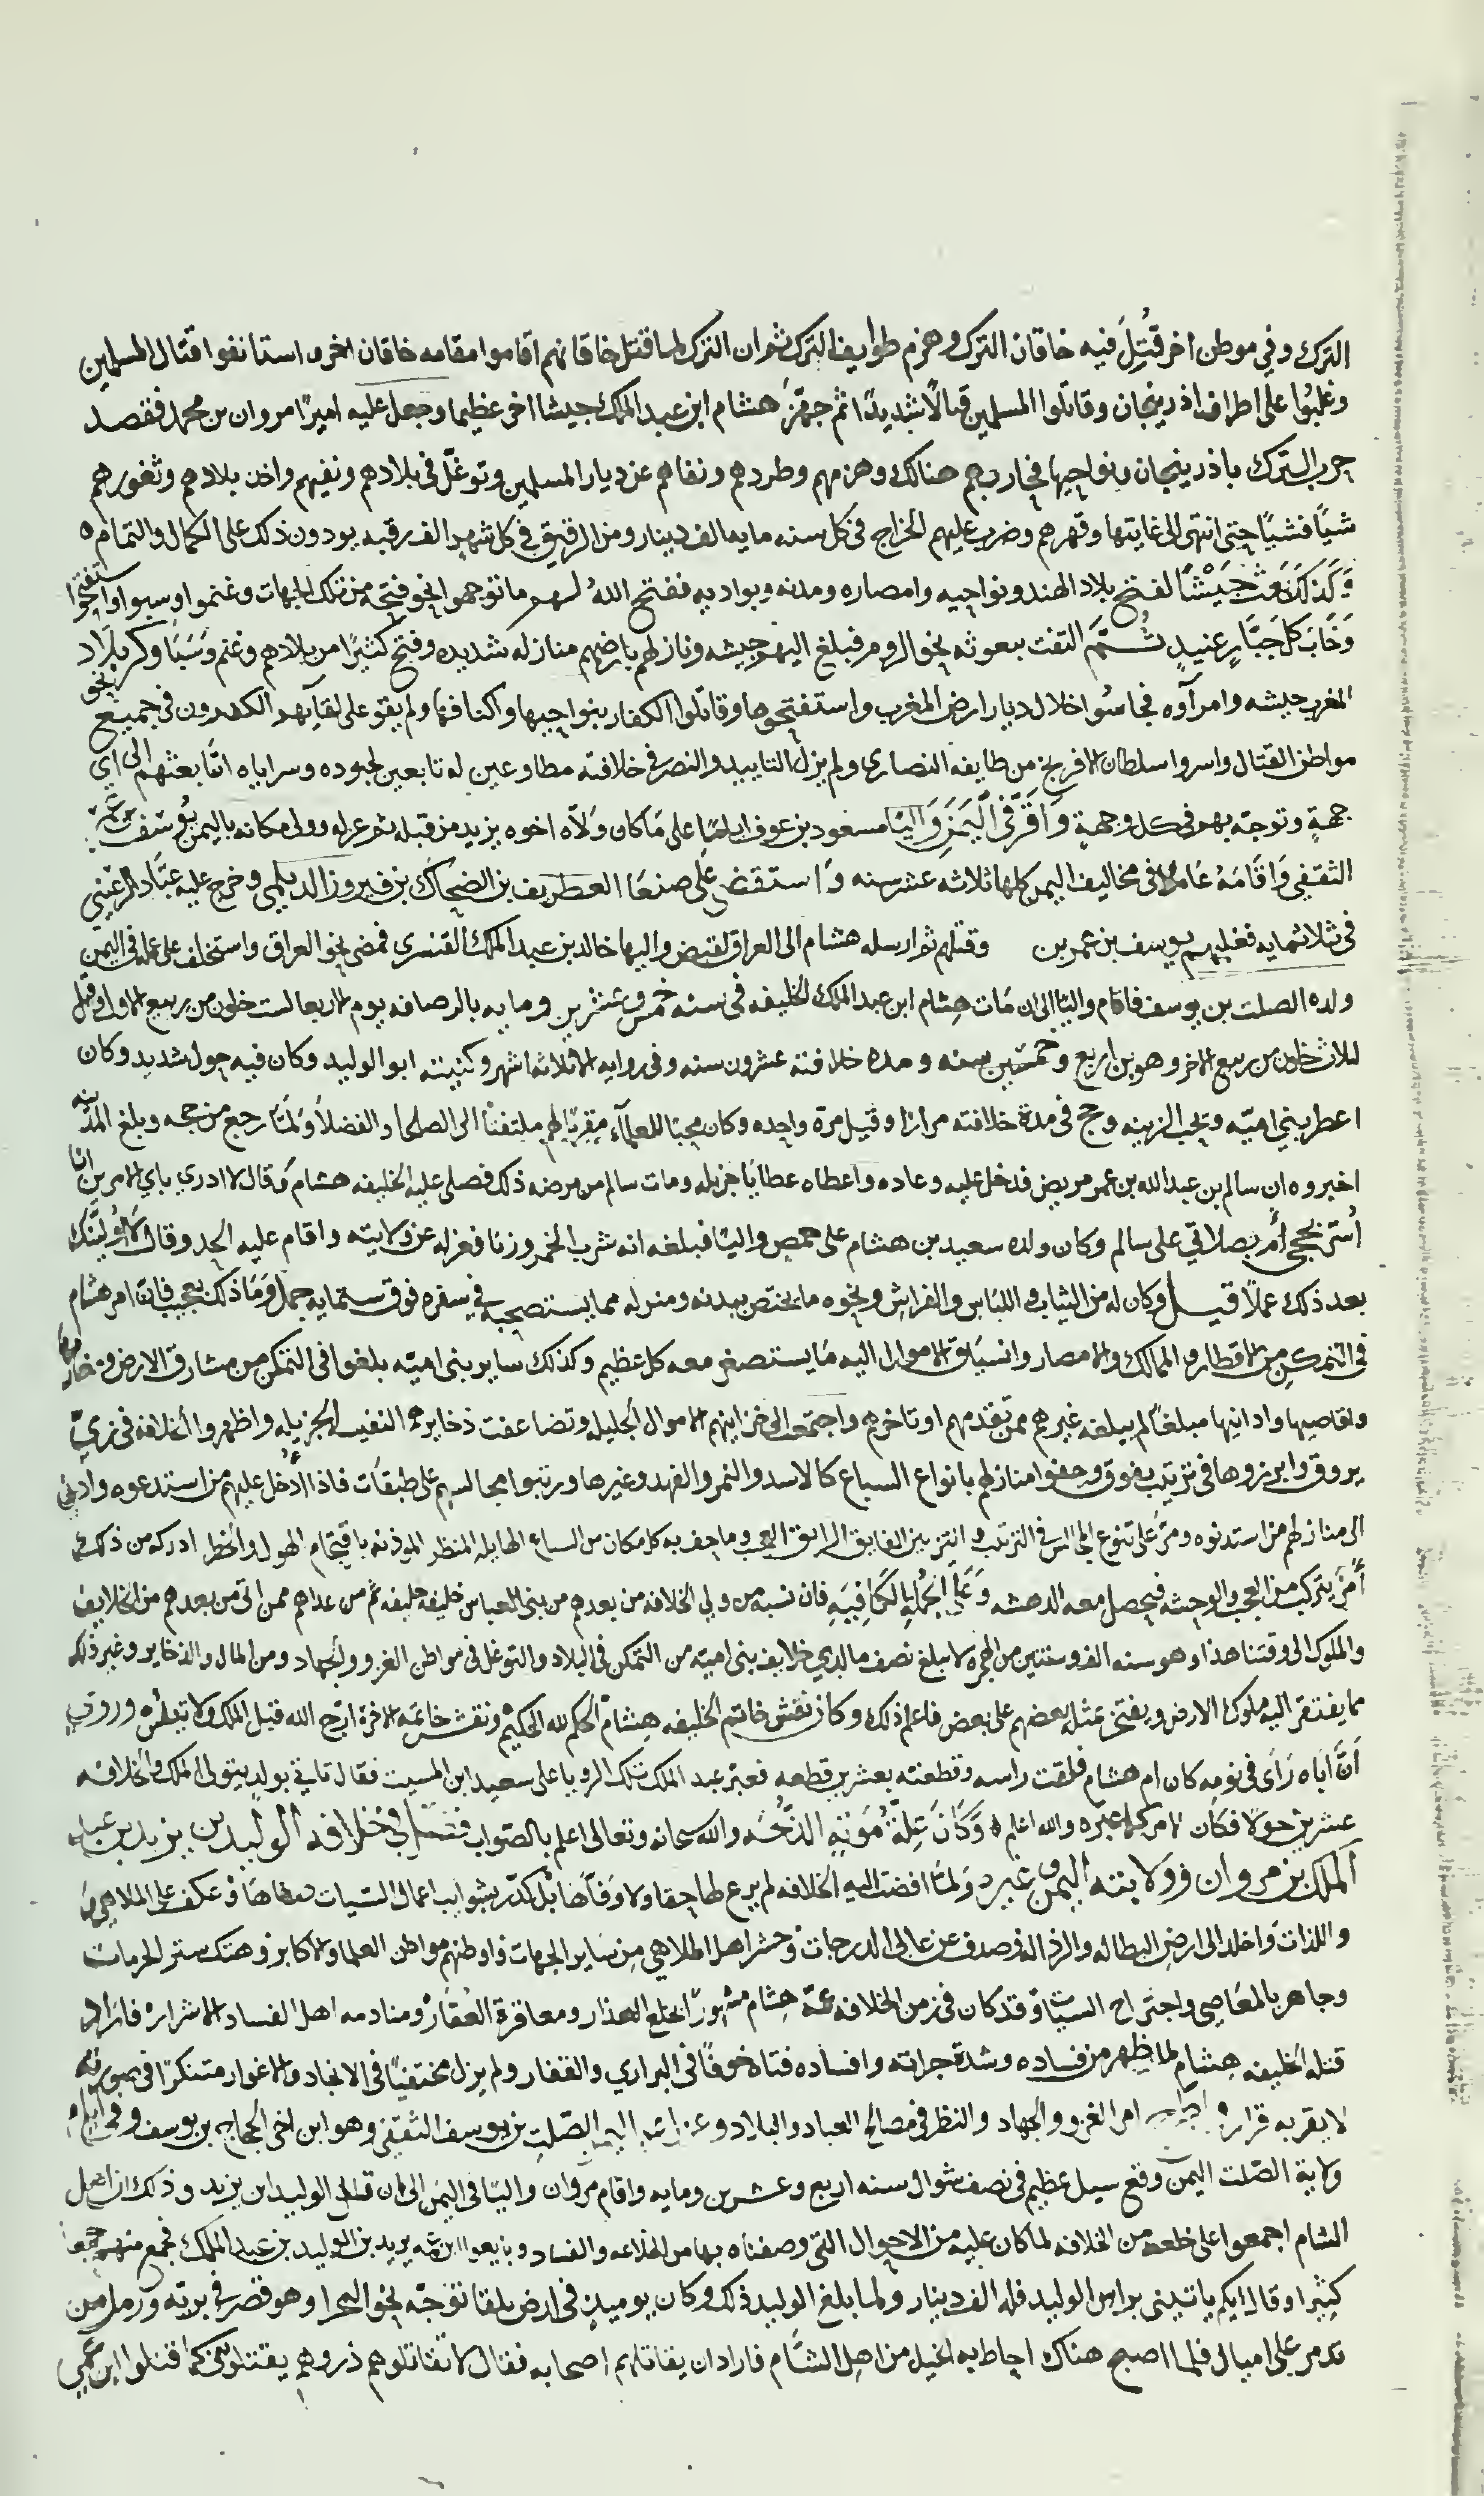 الترك وفي موطن اخر قُتِلَ فيه خاقان الترك وهزم طوايف الترك ثم ان الترك لما قتل خاقانهم اقاموا مقامه خاقان اخر واستانفوا قتال المسلمين
وغلبوا على اطراف اذربيجان وقاتلوا المسلمين قتالًا شديدًا ثم جهّز هشام ابن عبد الملك جيشا اخر عظيما وجعل عليه اميرًا مروان بن محمد فقصد
حرب الترك باذربيجان ونواحيها فحاربهم هنالك وهزمهم وطردهم ونفاهم عن ديار المسلمين وتوغّل في بلادهم ونفيهم واخذ بلادهم وثغورهم
شيًا فشيًا حتى انتهى الى غايتها وقهرهم وضرب عليهم الخراج في كل سنه مايه الف دينار ومن الرقيق في كل شهر الف رقبه يودون ذلك على الكمال والتمام ه
وَكَذلكَ بَعَثَ جَيْشًا لفتح بلاد الهند ونواحيه وامصاره ومدنه وبواديه ففتح اللهُ لهم ما توجهوا نحو فتحه من تلك الجهات وغنموا وسبوا واستفتحوا
وَخَابَ كلّ جَبّارٍ عنيدٍ ثُـمَّ التفت ببعوثه نحو الروم فبلغ اليهم جيشه ونازلهم بارضهم منازله شديده وفتح كثيرًا من بلادهم وغنم وَسَبَا وكر نحو بلاد
المغرب جيشه وامرآوه فجاسُوا خلال ديار ارض المغرب واستفتحوها وقاتلوا الكفار بنواحيها واكنافها ولم يقو على لقآيهم الكفرون في جميع
مواطن القتال واسروا سلطان الافرنج من طايفه النصارى ولم يزل التاييد والنصر في خلافته مطاوعين له تابعين لجنوده وسراياه اتّا بعثهم الى اي
جهةٍ وتوجّه بهم في كل وجهةٍ وَاَقَرَّ في الْيَمَنِ وَاليًا مسعود بن عوف على مَا كان وَلاّه اخوه يزيد من قبله ثم عزله وولى مكانه باليمن يوسف بن عمر
الثقفي وَاقَامَهُ عَاملا في مخاليف اليمن كلها ثلاثه عشر سنه وَاستقضى على صنعَا الغطريف بن الضحاك بن فيروز الديلمي وخرج عليه عبّاد الرعيني
في ثلاثمايه فغلبهم يوسف بن عمر بن وقتلهم ثم ارسله هشام الى العراق لقبض واليها خالد بن عبد الملك القسري فمضى نحو العراق واستخلف على عمله في اليمن
ولده الصلت بن يوسف فاقام واليًا الى ان مَات هِشام ابن عبد الملك الخليفه في سنه خمس وعشرين ومايه بالرصافه يوم الاربعا لست خلون من ربيع الاول وقيل
لثلاث خلون من ربيع الاخر وهو بن اربع وخمسين سنه ومده خلافته عشرون سنه وفي روايه الا ثلاثه اشهر وكنيته ابو الوليد وكان فيه حول شديد وكان
اعطر بني اميّه ويحب الزينه وحج في مدة خلافته مرارًا وقيل مرة واحده وكان محبًا للعلمآء مقربًا لهم ملتفتًا الى الصلحا والفضلا وَلمَّا رجع من حجه وبلغ المدينه
اخبروه ان سالم بن عبد الله بن عمر مريض فدخل عليه وعاده واعطاه عطايًا جزيله ومات سالم من مرضه ذلك فصلى عليه الخليفه هشام وَقال لا ادري باي الامرين انا
اُسَرّ بحجي اَم بصلاتي على سالم وكان ولده سعيد بن هشام على حمص واليًا فبلغه انه شرب الخمر وزنا فعزله عن ولايته واقام عليه الحد وقال لا وليتك
بعد ذلك عملًا قيـل وكان له من الثياب واللباس والفراش ونحوه ما يختص ببدنه ومنزله مما يستصحبه في سفره فوق ستمايه جمل وَمَا ذلك بعجيب فان امر هشام
في التمكن من الاقطار والممالك والامصار وانسياق الاموال اليه مَا يستصغر معه كل عظيم وكذلك ساير بني اميّه بلغوا في التمكن من مشارق الارض ومغاربها
واقاصيها وادانيها مبلغًا لم يبلغه غيرهم ممن تقدمهم او تاخرهم واجتمعت الى خزاينهم الاموال الجليله وتضاعفت ذخايرهم النفيسه الجزيله واظهروا الخلافه في زيّ
يروق وابرزوها في ترتيب يفوق وحفوا منازلهم بانواع السباع كالاسد والنمر والفهد وغيرها ورتبوا مجالسهم على طبقات فاذا ادخل عليهم من استدعوه وادني
الى منازلهم من استدنوه ومرّ على تنوع المجالس في الترتيب والتزيين الفايق الرايق العجب وما حف به كل مكان من السباع الهايله المنظر الموذنه باقتحام الهول والخطر ادركه من ذلك
اَمرٌ يتركب من العجب والوحشه فيحصل معه الدهشه وَعلى الجُملة الكافيَه فان نسبه من ولي الخلافه من بعدهم من بني العباس خليفه خليفه ثم من عداهم ممن اتى من بعدهم من الخلايف
والملوك الى وقتنا هذا وهو سنه الف وستين من الهجره لا يبلغ نصف ما لدي خلايف بني اميّه من التمكن في البلاد والتوغل في مواطن الغزو والجهاد ومن المال والذخاير وغير ذلك
مما يفتقر اليه ملوك الارض ويفتخر بمثله بعضهم على بعض فاعلم ذلك وكان نقش خاتم الخليفه هِشام الحكم لله الحكيم ونقش خاتمه الاخرة
اَنَّ اَباه رَاى في نومه كان ام هشام فلقت راسه وقطعته بعشرين قطعه فعبّر عبد الملك تلك الرويا على سعيد ابن المسيب فقال تاتي بولدٍ يتولى الملك والخلافه
عشرين حولًا فكَان الامر كما عبره والله اعلم ه وَكَانَ عِلّةُ مَوْتِهِ الذُّبحَه والله سبحانه وتعالى اعلم بالصّواب فصل في خلافه الوليد بن يزيد بن عبد
الملك بن مروان وولايته اليمن وَلمّا افضت اليه الخلافه لم يرع لها حقا ولا وَفّاهَا بل كدّر بشوايب اعمال السّيات وَعكف على الملاهي
واللذات وَاخلد الى ارض البطاله والرذاله وصدف عن عالي الدرجات وَحشر اهل الملاهي مِن سَاير الجهات وَاوطنهم مواطن العلما والاكابر وهتك ستر الحرمات
وجاهر بالمعَاصي واجتراح السيات وَقد كان في زمن الخلافه عمّه هِشام مشهورًا بخلع العذار ومعاقرة العُقار ومنادمه اهل الفساد الاشرار فاراد
قتله الخليفه هِشام لما ظهر من فساده وشدة جراته وافساده فتاه خوفًا في البراري والقفار ولم يزل مختفيًا في الانجاد والاغوار متنكرًا في صورته
لا يقر به قرار امر الغزو والجهاد والنظر في مصالح العباد والبلاد وعزل الصّلت بن يوسف الثقفي وهو ابن اخي الحجاج بن يوسف وفي ايام
ولاية الصّلت اليمن وقع سيل عظيم في نصف شوال سنه اربع وعشرين ومايه واقام مروان واليًا في اليمن الى ان قتل الوليد ابن يزيد وذلك ان اهل
الشام اجمعوا على خلعه من الخلافه لما كان عليه من الاحوال التي وصفناه بها من الخلاعه والفساد وبايعوا ابن عمه يزيد بن الوليد بن عبد الملك فجمع منهم جمعا
كثيرا وقال ايكم ياتيني براس الوليد فله الف دينار ولما بلغ الوليد ذلك وكان يوميذٍ في ارض بلقا توجّه نحو البحرا وهو قصر في بريّه ورمل من
تدمر على اميال فلما اصبح هناك احاط به الخيل من اهل الشام فاراد ان يقاتلهم اصحابه فقال لا تقاتلوهم ذروهم يقتلوني كما قتلوا ابن عمي